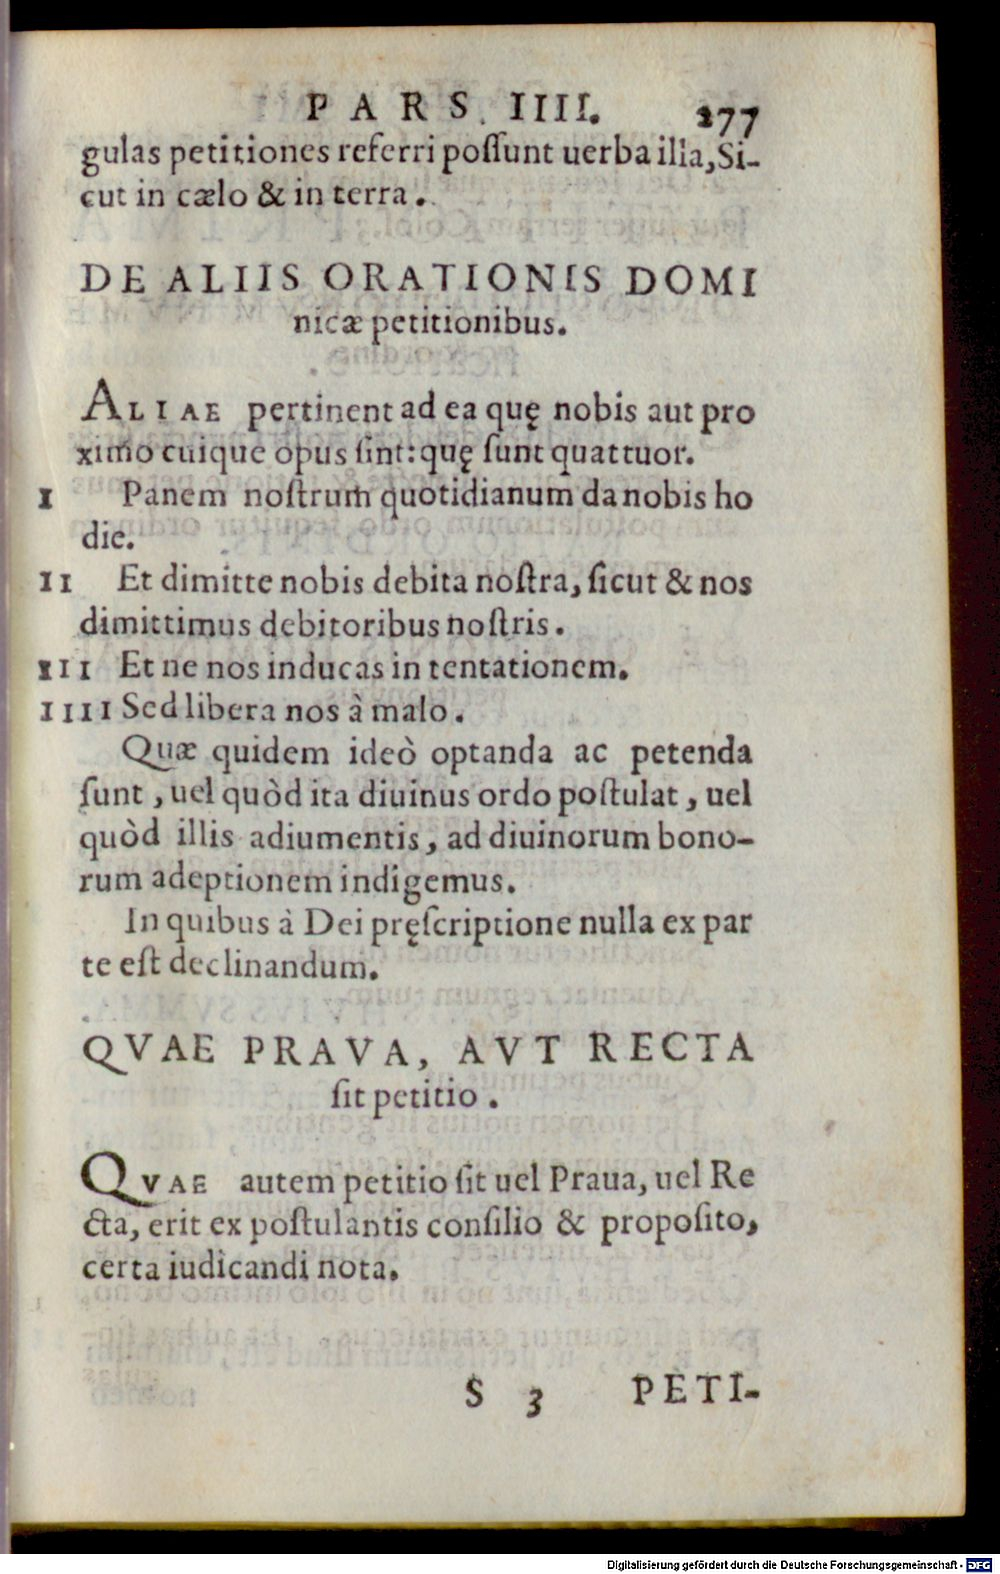 PARS IIII. 277
gulas petitiones referri poſſunt uerba illa, Si-
cut in cælo & in terra.
DE ALIIS ORATIONIS DOMI
nicæ petitionibus.
ALIAE pertinent ad ea quę nobis aut pro
ximo cuique opus ſint: quę ſunt quattuor.
I Panem noſtrum quotidianum da nobis ho
die.
II Et dimitte nobis debita noſtra, ſicut & nos
dimittimus debitoribus noſtris.
III Et ne nos inducas in tentationem.
IIII Sed libera nos à malo.
Quæ quidem ideò optanda ac petenda
ſunt, uel quòd ita diuinus ordo poſtulat, uel
quòd illis adiumentis, ad diuinorum bono-
rum adeptionem indigemus.
In quibus à Dei pręſcriptione nulla ex par
te eſt declinandum.
QVAE PRAVA, AVT RECTA
ſit petitio.
QVAE autem petitio ſit uel Praua, uel Re
cta, erit ex poſtulantis conſilio & propoſito,
certa iudicandi nota.
S 3 PETI-
Digitalisierung gefördert durch die Deutsche Forschungsgemeinschaft - DFG